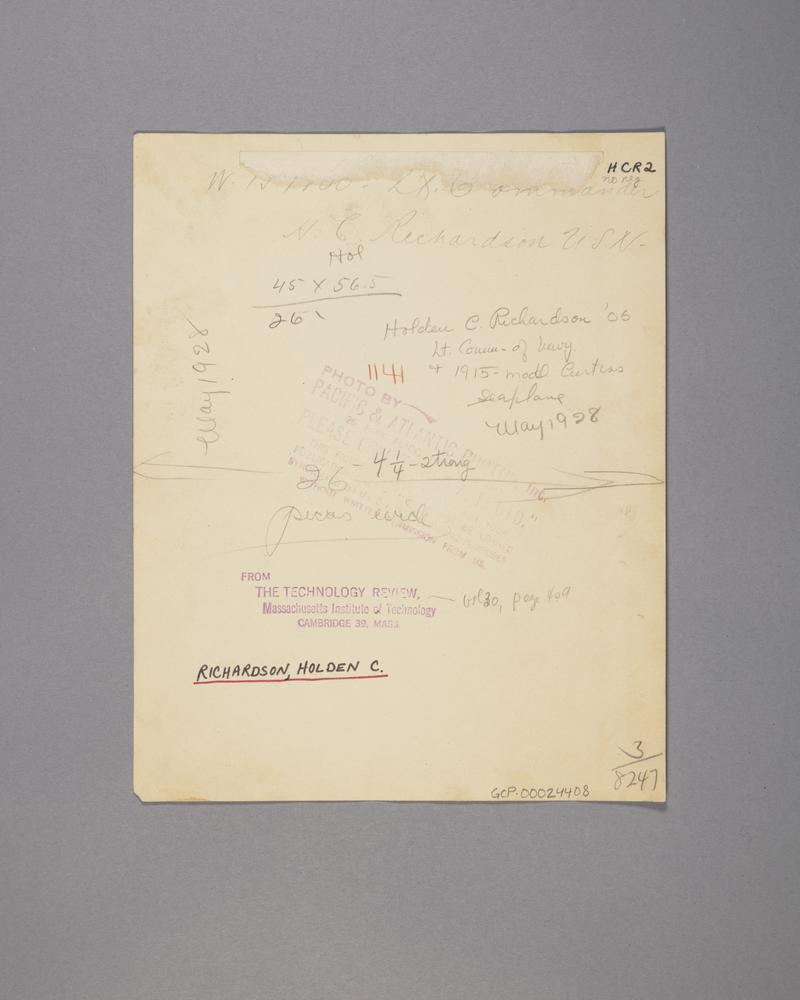 HCR2
no neg
Lt. Commander
H. C. Richardson U.S.N.
Hol
45 X 56.5
26
Holden C. Richardson '06
Lt. Comm. of Navy
+ 1915 - model Curtiss
seaplane
May 1928
May 1928
1141
PHOTO BY
PACIFIC & ATLANTIC PHOTOS, Inc.
PLEASE
WITHOUT WRITTEN PERMISSION FROM US.
26 - 4 1/4 - strong
picas wide
FROM
THE TECHNOLOGY REVIEW,
Massachusetts Institute of Technology
CAMBRIDGE 39, MASS.
vol 30, page 409
RICHARDSON, HOLDEN C.
3
8247
GCP-00024408